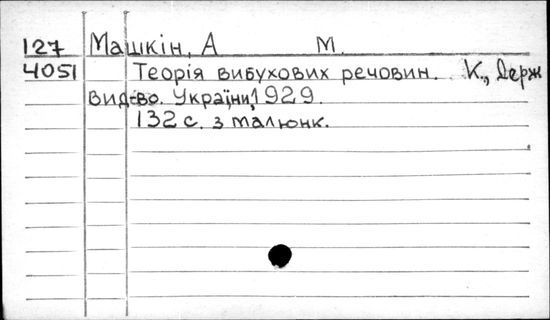 127 Машкін, А М.
4051 Теорія вибухових речовин. К., Держ
вид-во. України, 1929.
132 с. з малюнк.